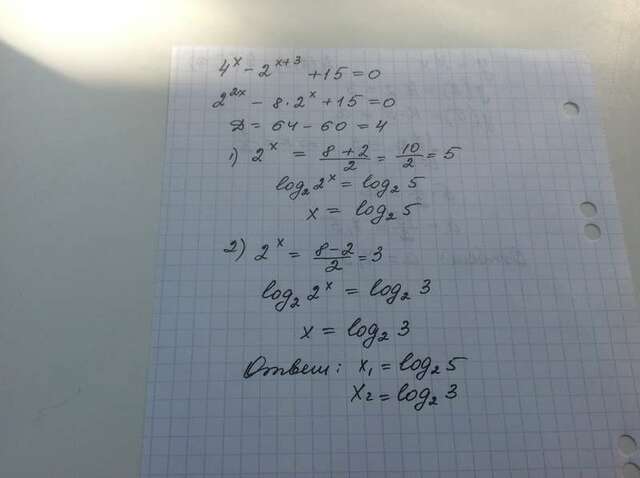 4^x - 2^(x+3) + 15 = 0
2^(2x) - 8 · 2^x + 15 = 0
Д = 64 - 60 = 4
1) 2^x = (8+2)/2 = 10/2 = 5
log₂ 2^x = log₂ 5
x = log₂ 5
2) 2^x = (8-2)/2 = 3
log₂ 2^x = log₂ 3
x = log₂ 3
Ответ: x₁ = log₂ 5
x₂ = log₂ 3